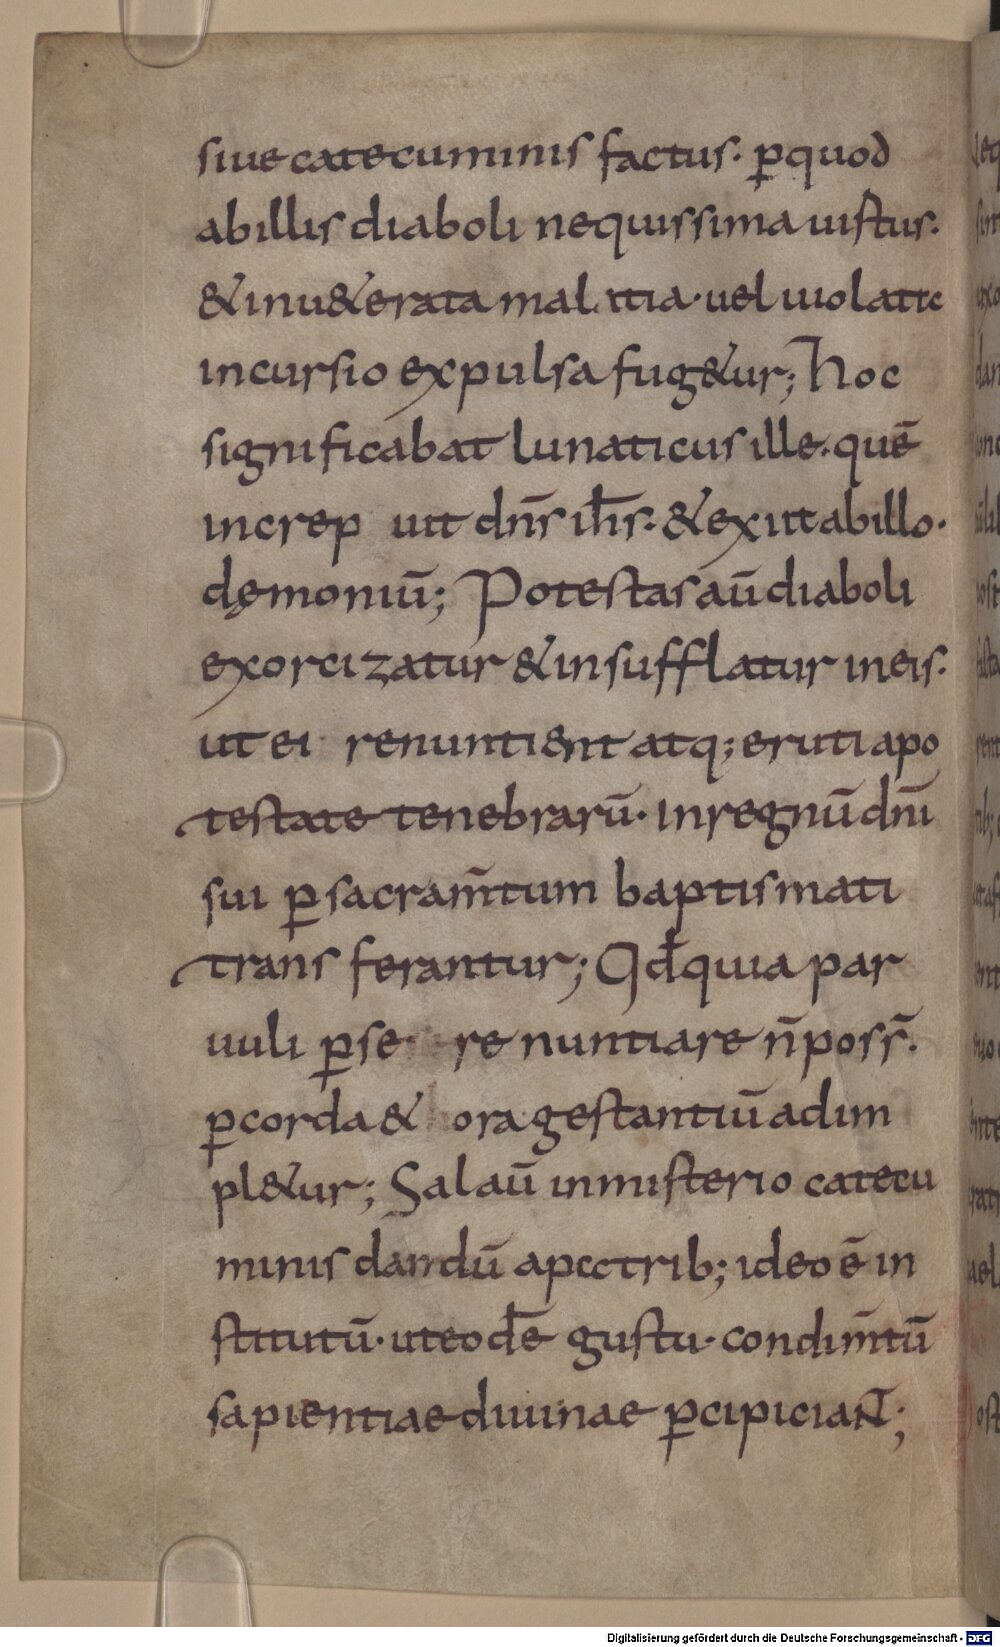 siue catecuminis factus· p̲quod
abillis diaboli nequissima uistus·
&inu&erata malitia· uel uiolatic
incursio expulsa fug&ur; hoc
significabat lunaticus ille· quē
increp uit dn̄s ih̄s· &exiit abillo·
dęmoniū; Potestas aū diaboli
exorcizatur &insufflatur ineis·
ut ei renuntient atq; eruti apo
testate tenebrarū· inregnū dn̄i
sui p̲ sacram̄tum baptismati
transferantur; Qd̄ quia par
uuli p̲se renuntiare n̄ poss̄·
p̲corda & ora gestantiū adim
pl&ur; Sal aū inmisterio catecu
minis dandū apcctrib; ideo ē in
stitutū· uteodē gustu· condim̄tū
sapientiae diuinae p̲cipiciant;
Digitalisierung gefördert durch die Deutsche Forschungsgemeinschaft - DFG